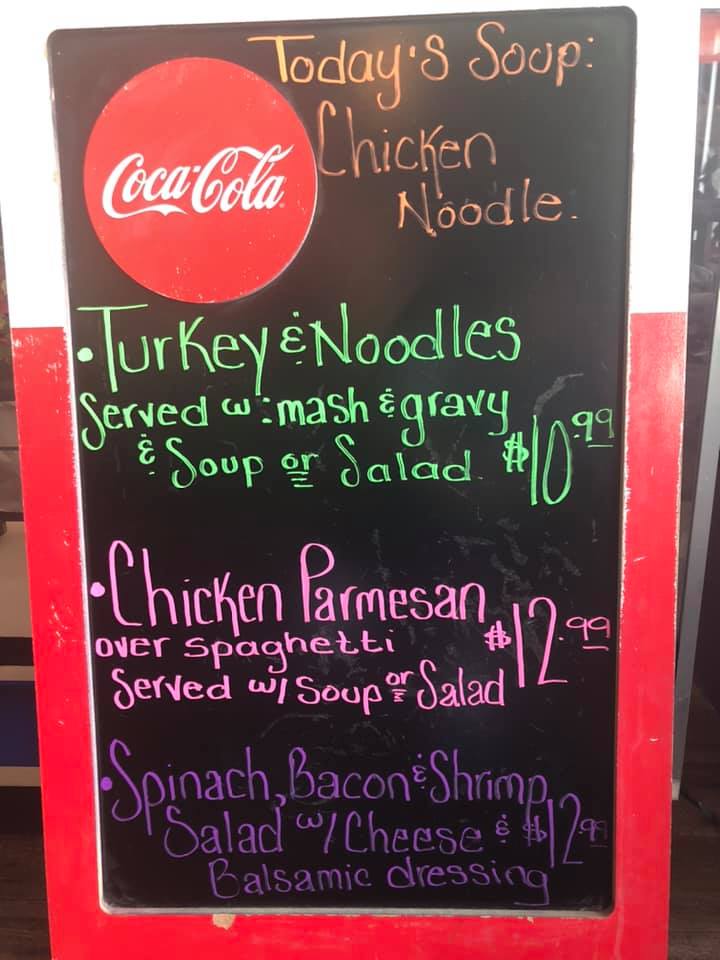 Today's Soup:
Coca-Cola
Chicken
Noodle.
• Turkey & Noodles
Served w: mash & gravy
& Soup or Salad $10.99
• Chicken Parmesan
over spaghetti $12.99
Served w/ Soup or Salad
• Spinach, Bacon & Shrimp
Salad w/ Cheese & $12.99
Balsamic dressing